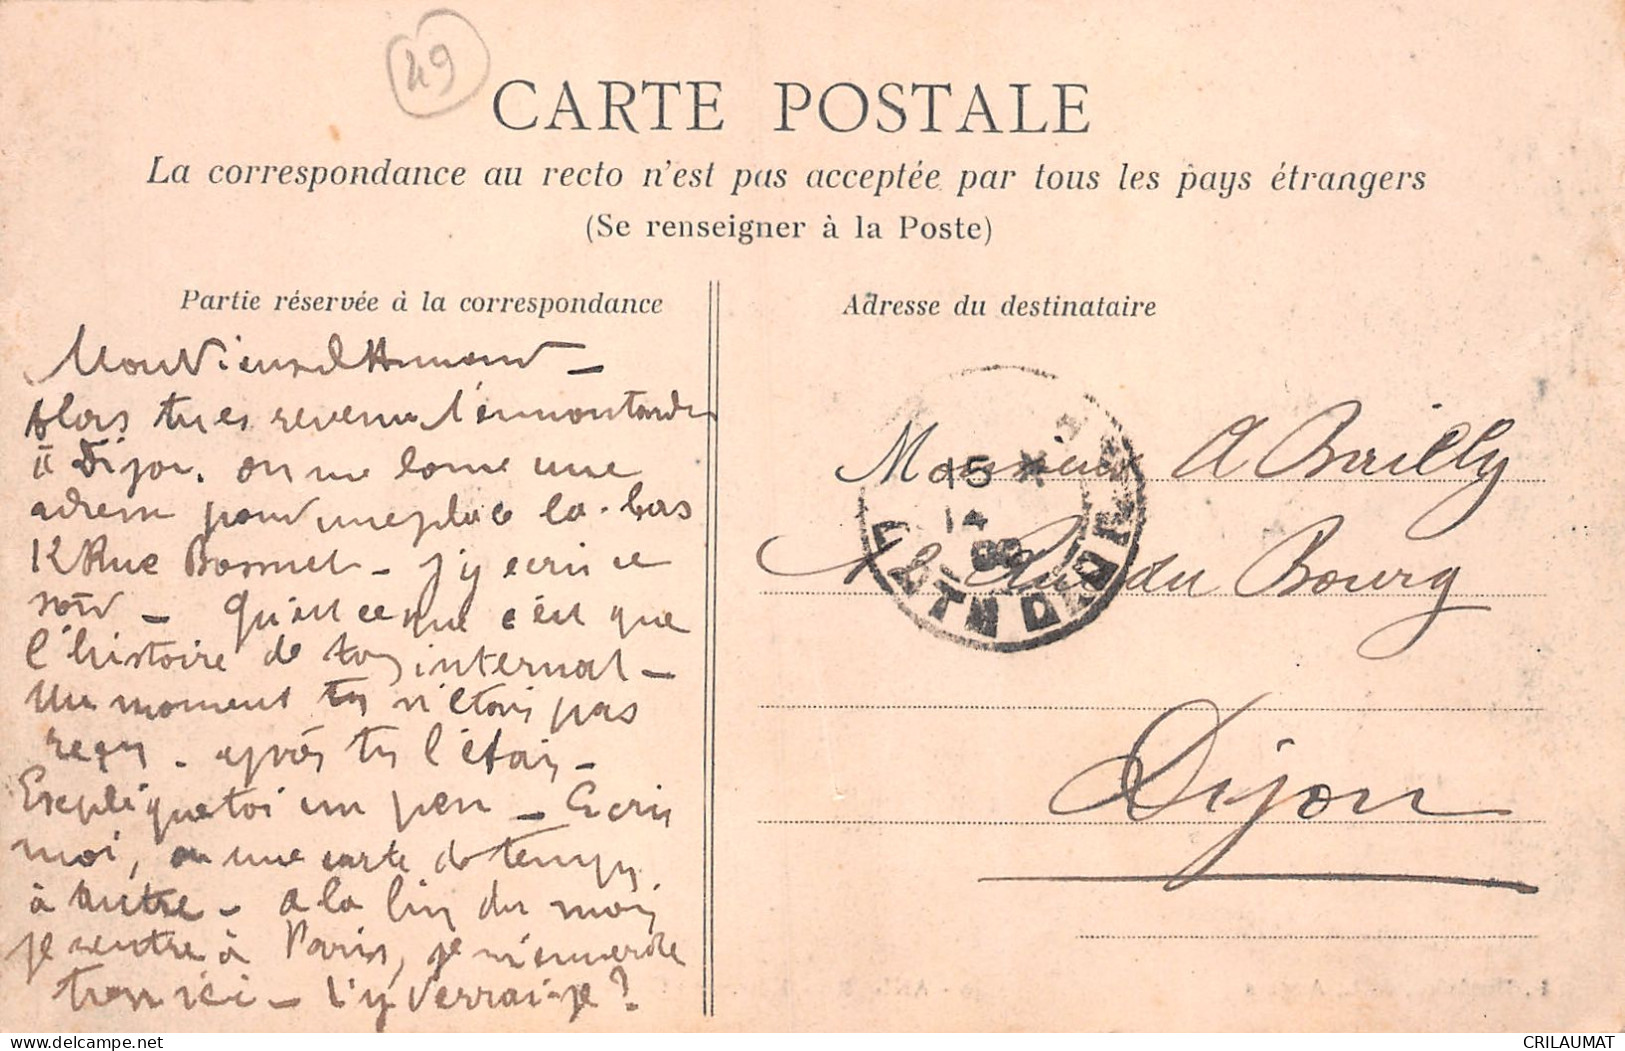 49
CARTE POSTALE
La correspondance au recto n'est pas acceptée par tous les pays étrangers
(Se renseigner à la Poste)
Partie réservée à la correspondance
Adresse du destinataire
Mon Vieux
Alors tu es revenu
à Dijon. on me donne une
adresse pour une place là-bas
12 Rue Bossuet - j'y écris ce
soir - Qu'est ce que c'est que
l'histoire de ton internat -
Un moment tu n'étais pas
reçu - après tu l'étais -
Explique toi un peu - Ecris
moi, ou une carte de temps
à autre - A la fin du mois
je rentre à Paris, je m'emmerde
trop ici - T'y verrai-je ?
Monsieur A Bailly
Rue du Bourg
Dijon
15
CRILAUMAT